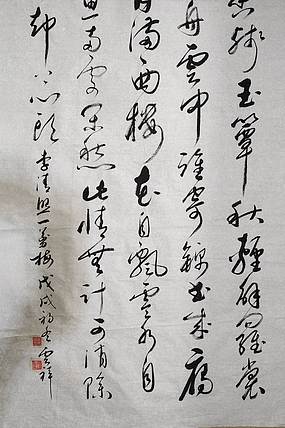 香殘玉簟秋輕解羅裳
舟雲中誰寄錦書來雁
月滿西樓花自飄零水自
思兩處閒愁此情無計可消除
却上心頭
李清照一剪梅 戊戌初冬 雲祥